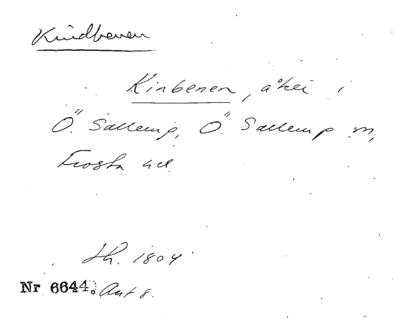 Kindbenen
Kinbenen, åker i
Ö. Sallerup, Ö. Sallerup sn,
Frosta hd.
Sk. 1804
Nr 6644. Ant 8.